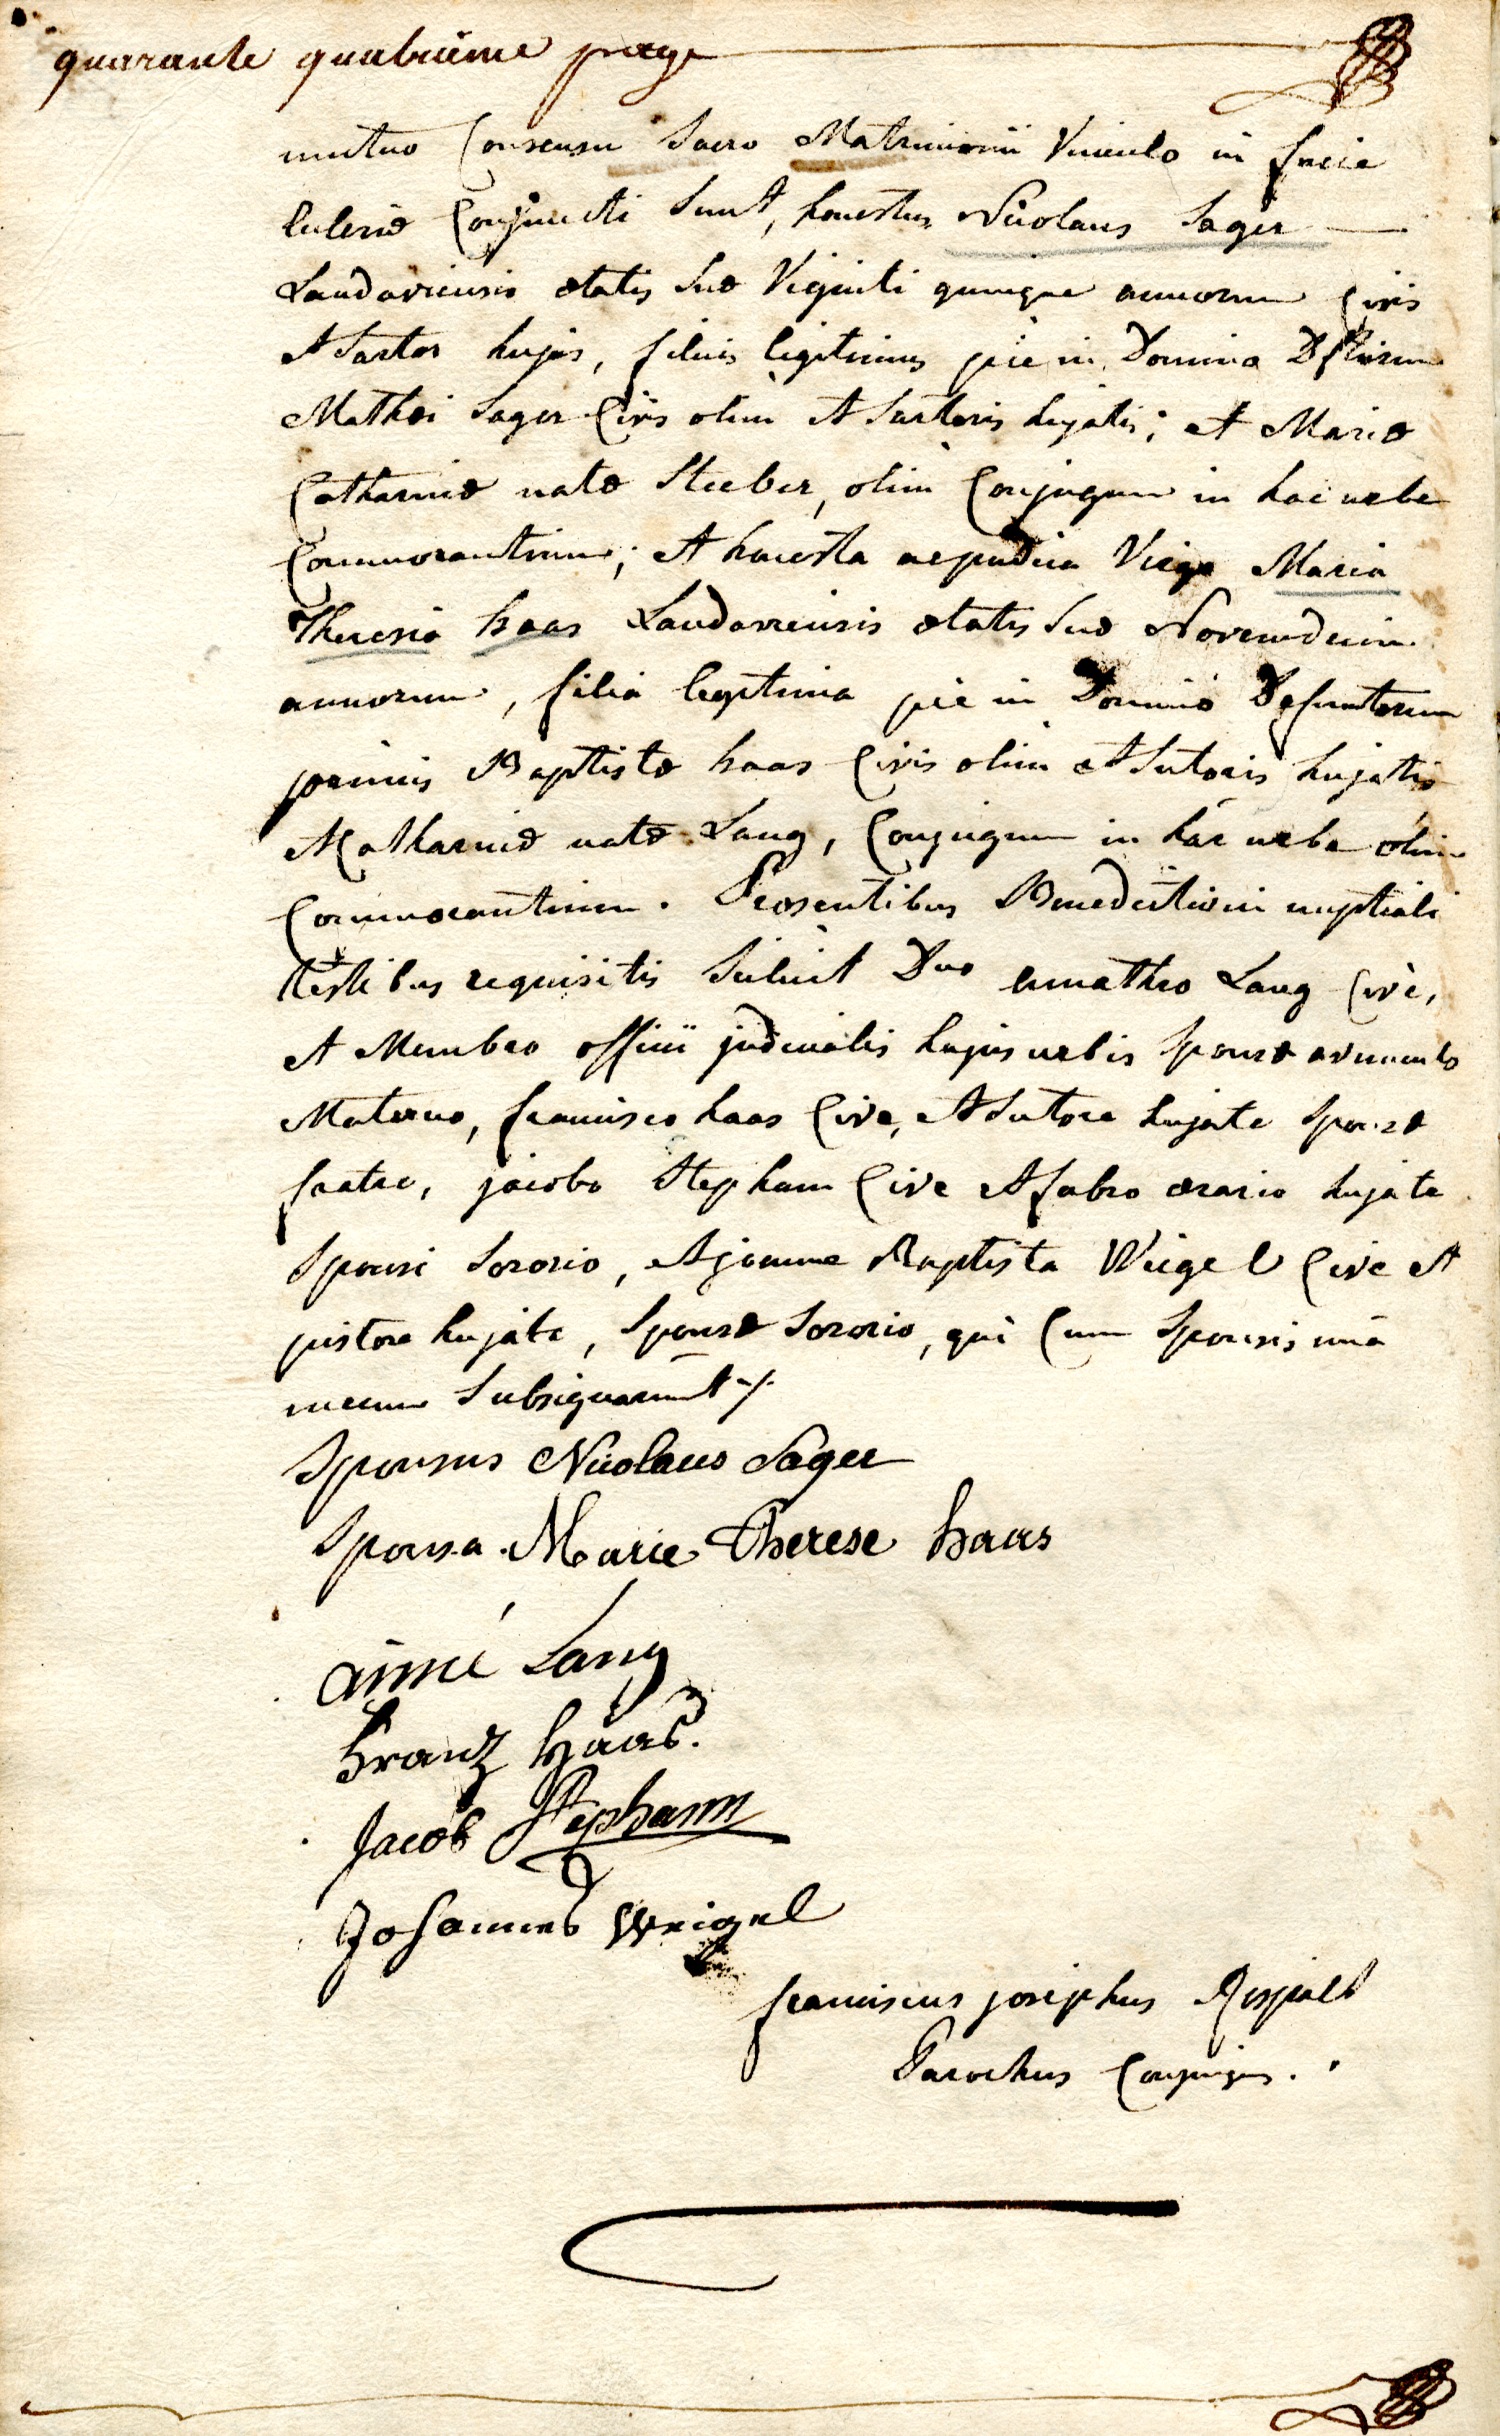 quarante quatrieme page
mutuo Consensu Sacro Matrimonii Vinculo in facie
Eclesiæ Conjuncti Sunt, honestus Nicolaus Sager
Landaviensis ætatis suæ Viginti quinque annorum Civis
et Sartor hujas, filius legitimus pie in Domino Deftorum
Mathæi Sager Civis olim et Sartoris hujatis; et Mariæ
Catharinæ natæ Steeber, olim Conjugum in hac urbe
Commorantium; et honesta ac pudica Virgo Maria
Theresia haas Landaviensis ætatis Suæ Novemdecim
annorum, filia legitima pie in Domino Defunctorum
joannis Baptistæ haas Civis olim et Sutoris hujatis
et Catharinæ natæ Lang, Conjugum in hac urbe olim
Commorantium. Præsentibus Benedictioni nuptiali
testibus requisitis Scilicet Dno amatheo Lang Cive,
et Membro officii judicialis hujus urbis Sponsæ avunculo
Materno, francisco haas Cive, et Sutore hujate Sponsæ
fratre, jacobo Stephann Cive et fabro ærario hujate
Sponsi Sororio, et joanne Baptista Weigel Cive et
pistore hujate, Sponsæ Sororio, qui Cum Sponsis unâ
mecum Subsignarunt
Sponsus Nicolaus Sager
Sponsa Marie Therese haas
aimé Lang
Franz Haas.
Jacob Stephann
Johannes Weigel
franciscus josephus
Parochus Conjungens.